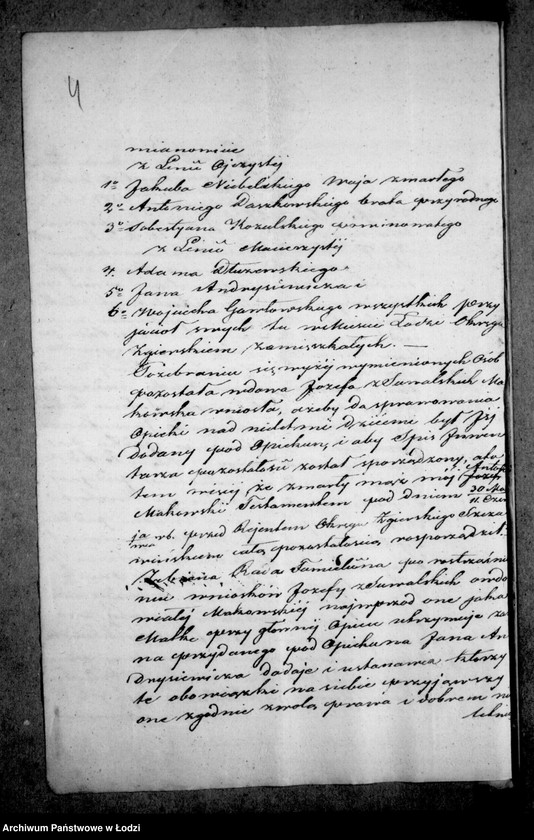 4
mianowicie
z Linii Ojczystej
1º Jakuba Niebelskiego wuja zmarłego
2º Antoniego Daszkowskiego brata przyrodnego
3º Sobestyana Kozulskiego
z Linii Macierzystej
4. Adama Dłuzewskiego
5º Jana Andrysiewicza i
6º Woyciecha Gawłowskiego wszystkich przy
jaciół swych tu w Mieście Łodzi Okręgu
Zgierskiem zamieszkałych. —
Po zebraniu się wyżej wymienionych osób
pozostała wdowa Józefa z Suwalskich Ma
kowska wniosła, ażeby do sprawowania
Opieki nad nieletnemi dziećmi był Jej
dodany pod Opiekun, i aby Spis Inwen
tarza pozostałości został sporządzony, a
tem więcej że zmarły mąż mój Antoni
Makowski Testamentem pod dniem 30 Ma
ja rb. przed Rejentem Okręgu Zgierskiego
całą pozostałością rozporządził.
Zebrana Rada Familijna po roztrząśnie
niu wniosków Józefy z Suwalskich owdo
wiałej Makowskiej najprzód one jako
Matkę przy głównej Opiece utrzymuje za
na przydanego pod Opiekuna Jana An
drysiewicza dodaje i ustanawia którzy
te obowiązki na siebie przyjąwszy
one zgodnie z wolą prawa i dobrem nie
letnich
Archiwum Państwowe w Łodzi